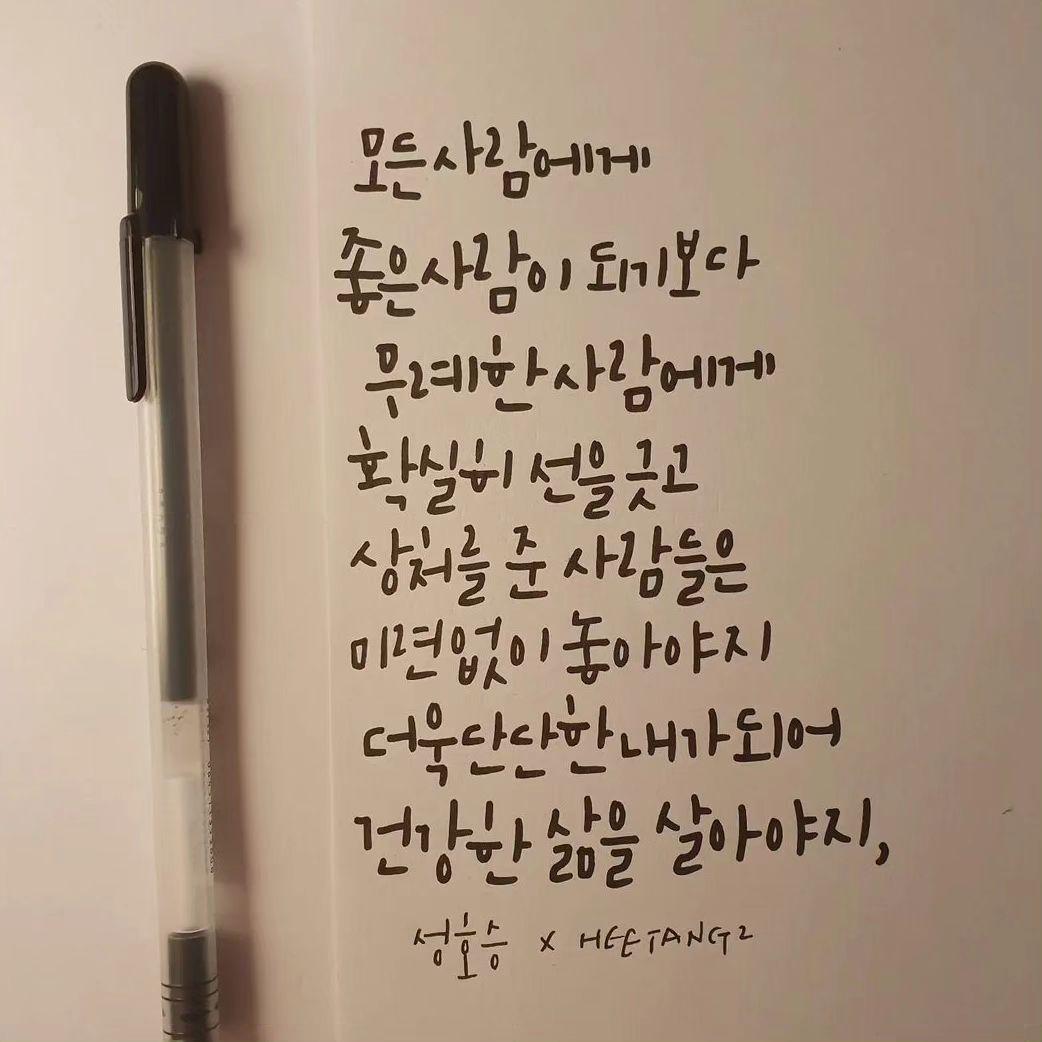 모든 사람에게
좋은 사람이 되기보다
무례한 사람에게
확실히 선을 긋고
상처를 준 사람들은
미련없이 놓아야지
더욱 단단한 내가 되어
건강한 삶을 살아야지,
성호승 x HEETANG2